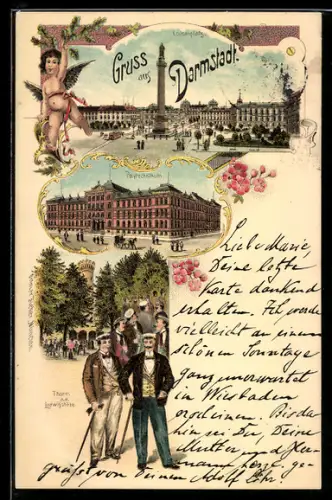 Luisenplatz
Gruss
aus
Darmstadt.
Polytechnikum
Thurm
a.d.
Ludwigshöhe
Liebe Marie,
Deine letzte
Karte dankend
erhalten. Ich werde
vielleicht an einem
schönen Sonntage
ganz unerwartet
in Wiesbaden
erscheinen. Bis da-
hin sei Du, Deine
Mutter und Her-
mann herzl. ge-
grüßt von Deinem Adolf